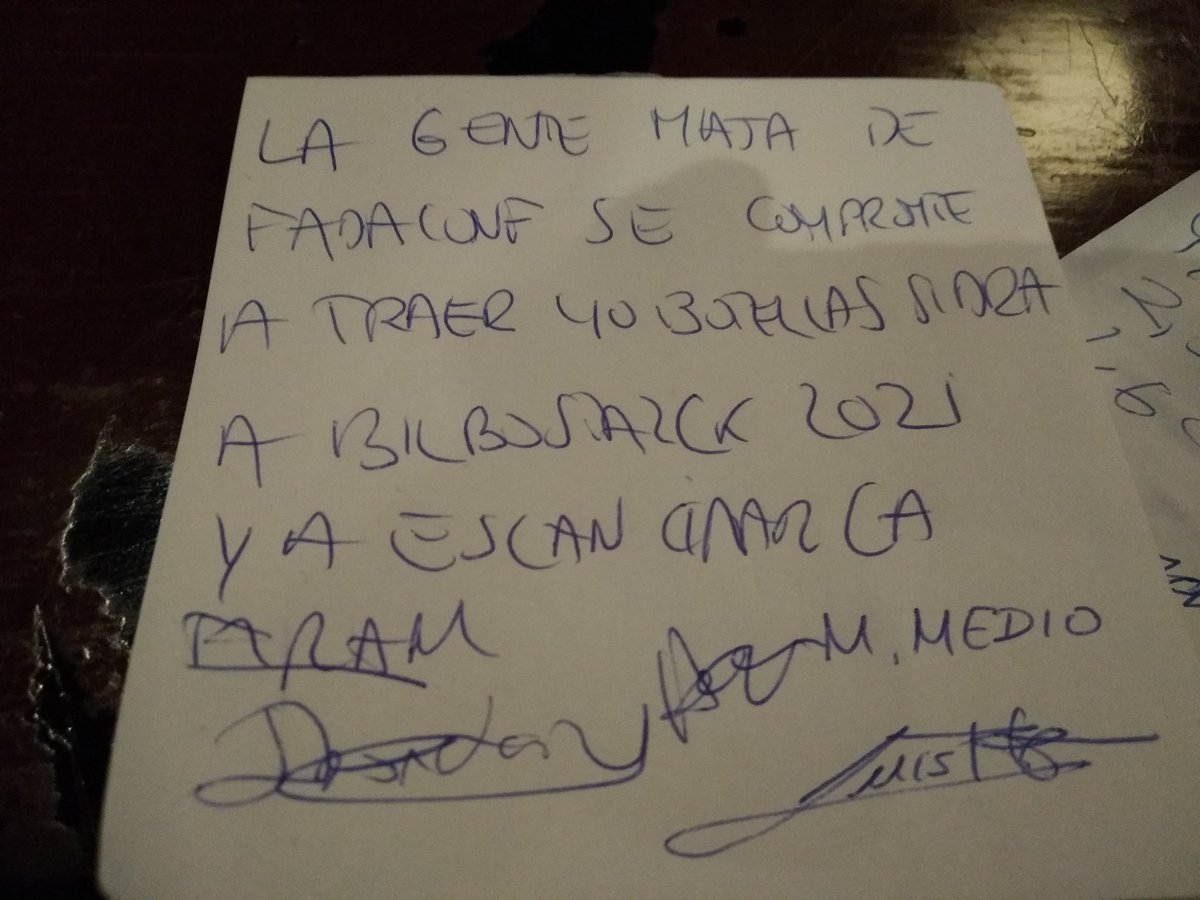 LA GENTE MAJA DE
FADACONF SE COMPROMTE
A TRAER 40 BOTELLAS SIDRA
A BILBOSTACK 2021
Y A ESCANCIARLA
ARAM
M. MEDIO